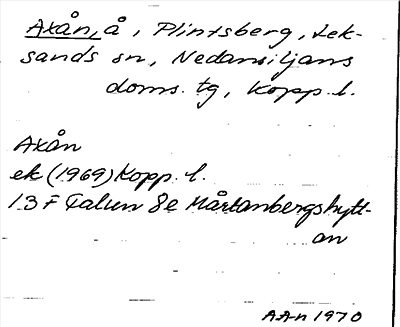 Axån, å, Plintsberg, Lek-
sands sn, Nedansiljans
doms. tg, Kopp. l.
Axån
ek (1969) Kopp. l.
13 F Falun 8e Mårtanbergshytt-
an
AAn 1970